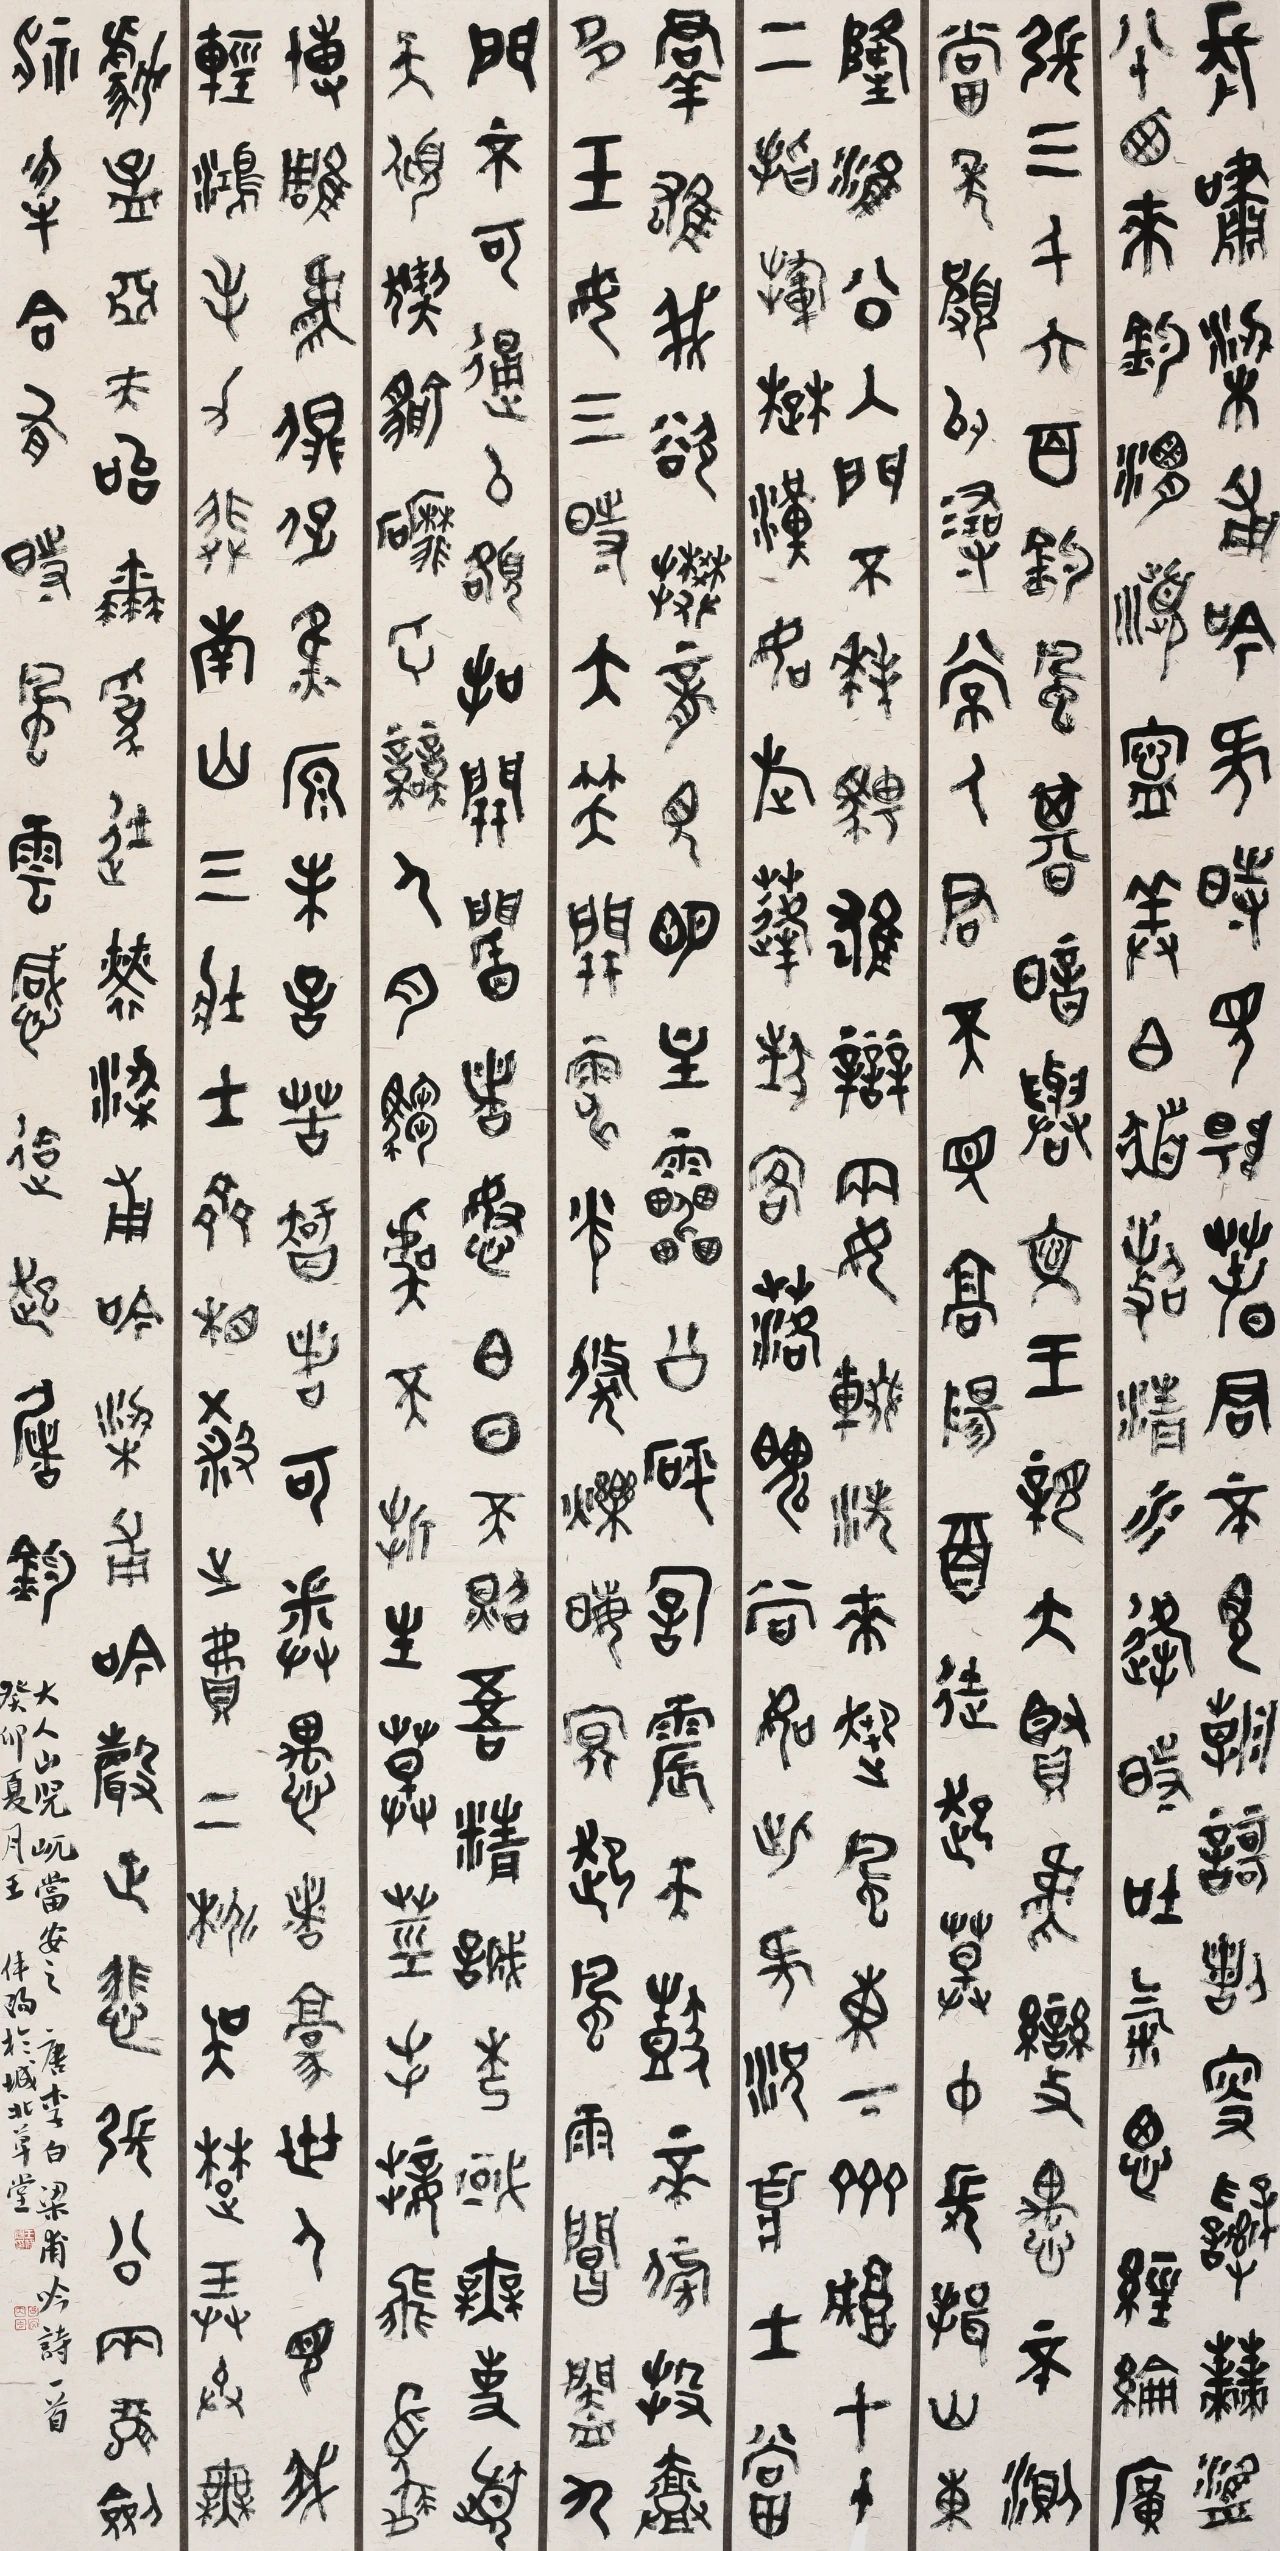 長嘯梁甫吟何時見陽春君不見朝歌屠叟辭棘津
八十西來釣渭濱寧羞白髮照清水逢時吐氣思經綸廣
張三千六百釣風期暗與文王親大賢虎變愚不測
當年頗似尋常人君不見高陽酒徒起草中長揖山東
隆準公入門不拜騁雄辯兩女輟洗來趨風東下齊城七十
二指揮楚漢如旋蓬狂客落魄尚如此何況壯士當
群雄我欲攀龍見明主雷公砰訇震天鼓帝旁投壺
多玉女三時大笑開電光倏爍晦冥起風雨閶闔九
門不可通以額扣關閽者怒白日不照吾精誠杞國無事憂
天傾猰貐磨牙競人肉騶虞不折生草莖手接飛猱
搏雕虎側足焦原未言苦智者可卷愚者豪世人見我
輕鴻毛力排南山三壯士齊相殺之費二桃吳楚弄兵無
劇孟亞夫咍爾為徒勞梁甫吟梁甫吟聲正悲張公兩龍劍
神物合有時風雲感會起屠釣
大人屼當安之唐李白梁甫吟詩一首
癸卯夏月王於城北草堂